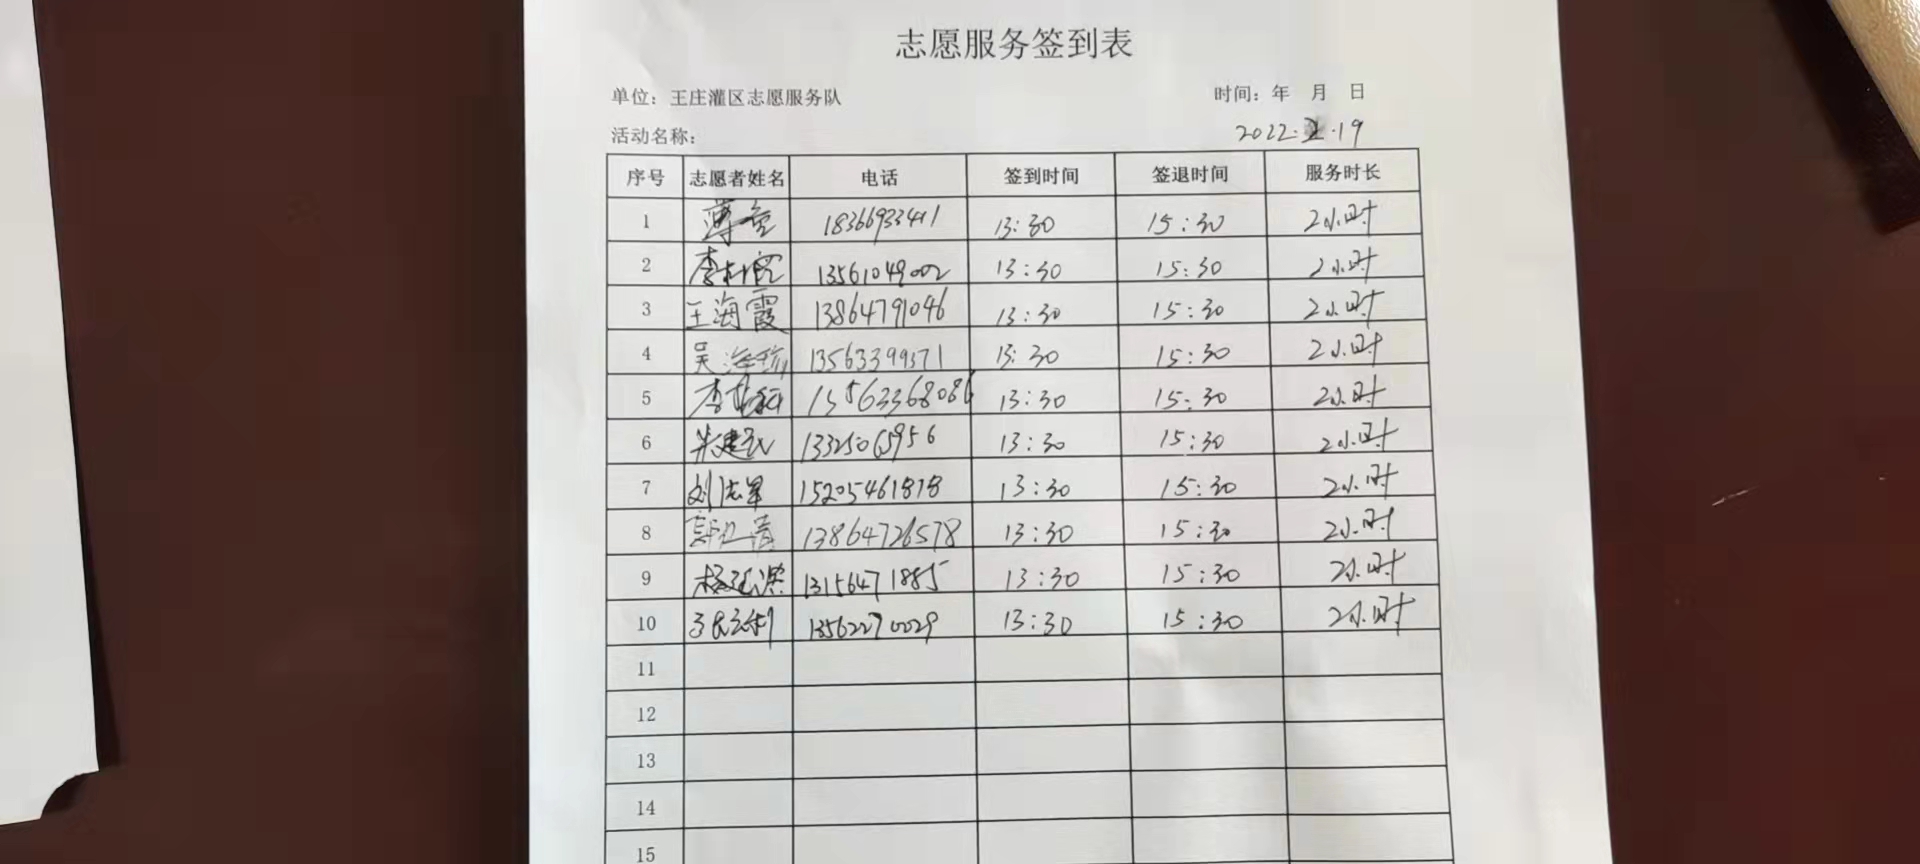 志愿服务签到表
单位：王庄灌区志愿服务队 时间：年 月 日
活动名称： 2022. .19
序号 志愿者姓名 电话 签到时间 签退时间 服务时长
1 13:30 15:30 2小时
2 李 13561049002 13:30 15:30 2小时
3 王海霞 13864791046 13:30 15:30 2小时
4 吴海 13563399371 13:30 15:30 2小时
5 李 15563368086 13:30 15:30 2小时
6 建民 13:30 15:30 2小时
7 刘志军 15205461818 13:30 15:30 2小时
8 13864726578 13:30 15:30 2小时
9 杨 13156471885 13:30 15:30 2小时
10 13562270029 13:30 15:30 2小时
11
12
13
14
15